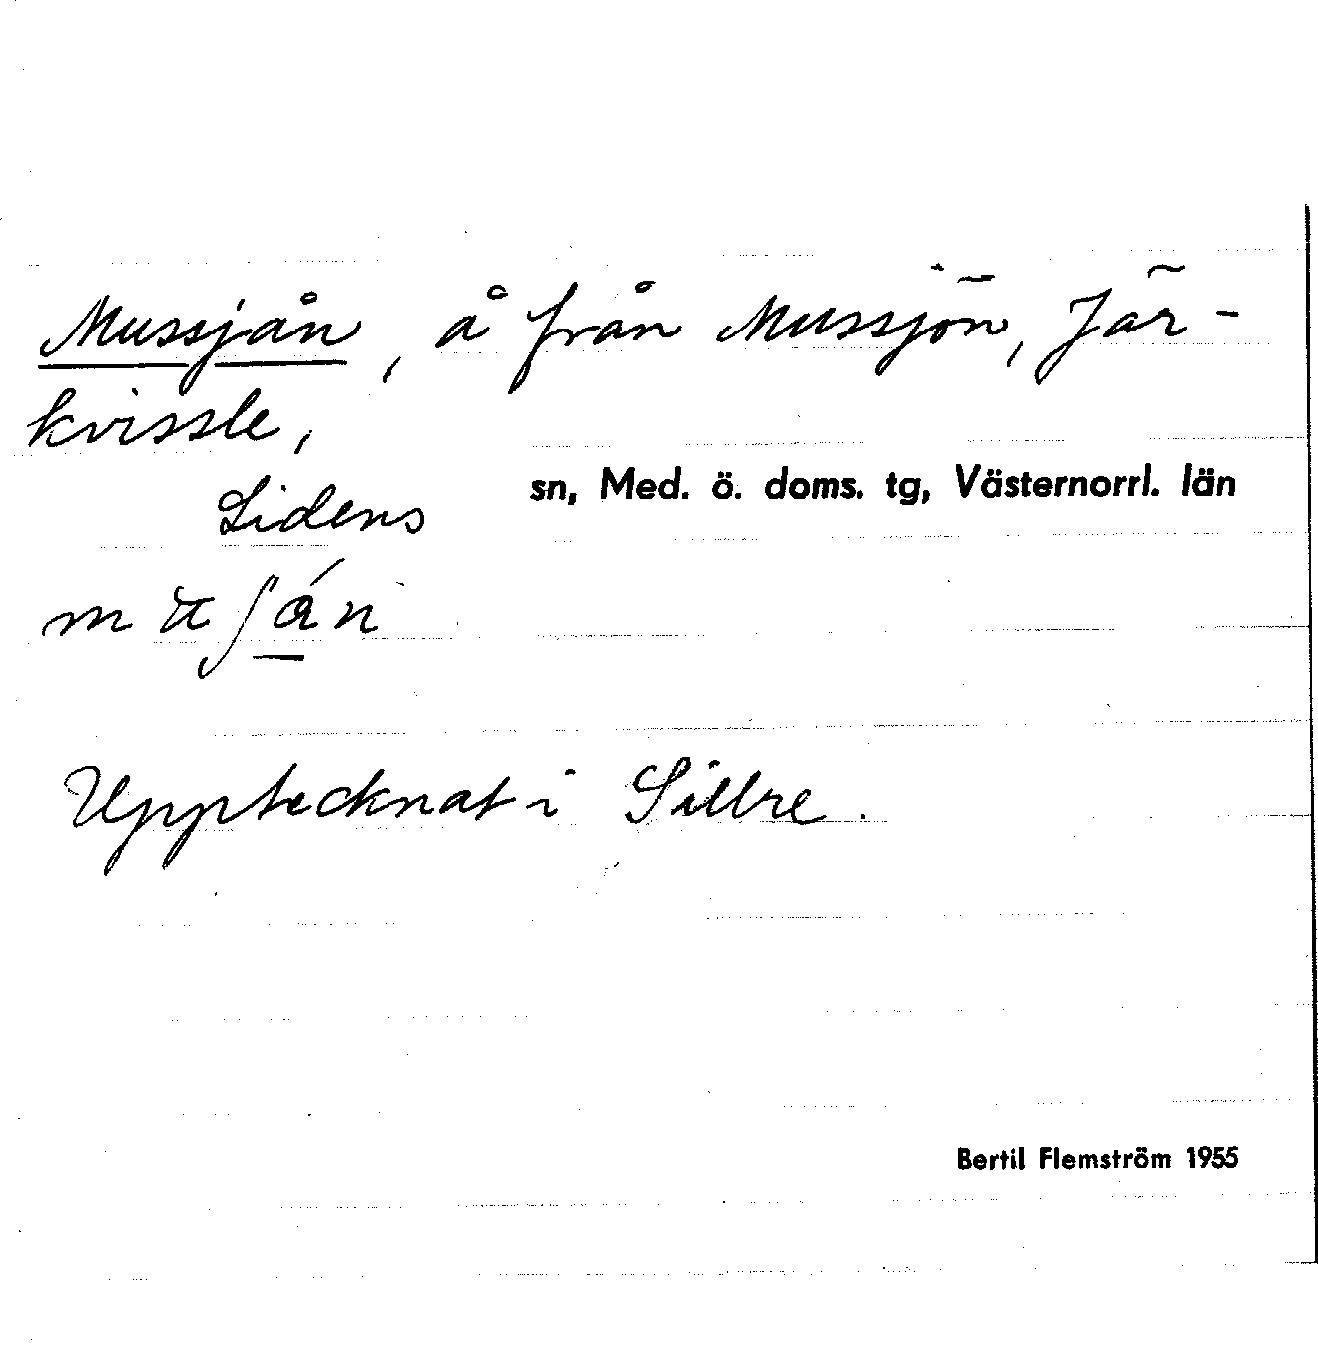 Mussjån, å från Mussjön, Jär-
kvissle,
Lidens sn, Med. ö. doms. tg, Västernorrl. län
Upptecknat i Sillre.
Bertil Flemström 1955